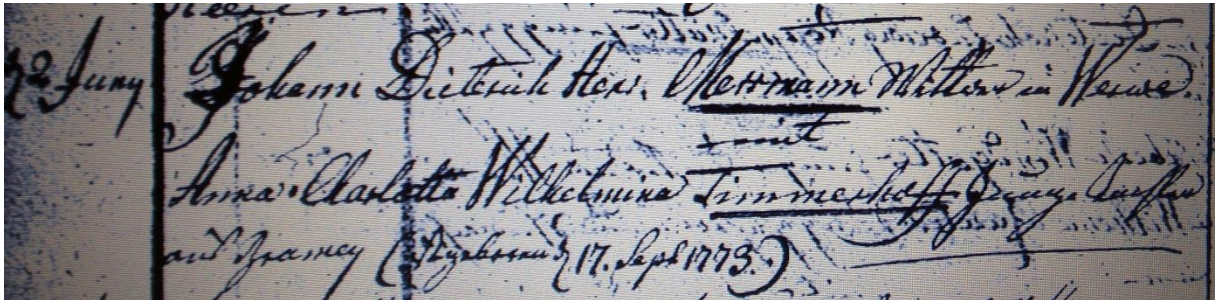 d 2 Juny Johann Dieterich Henr. Meermann Wittwer in Werwe.
mit
Anna Charlotta Wilhelmina Timmerhoff Jungf.
aus (gebohren d 17. Sept 1773.)